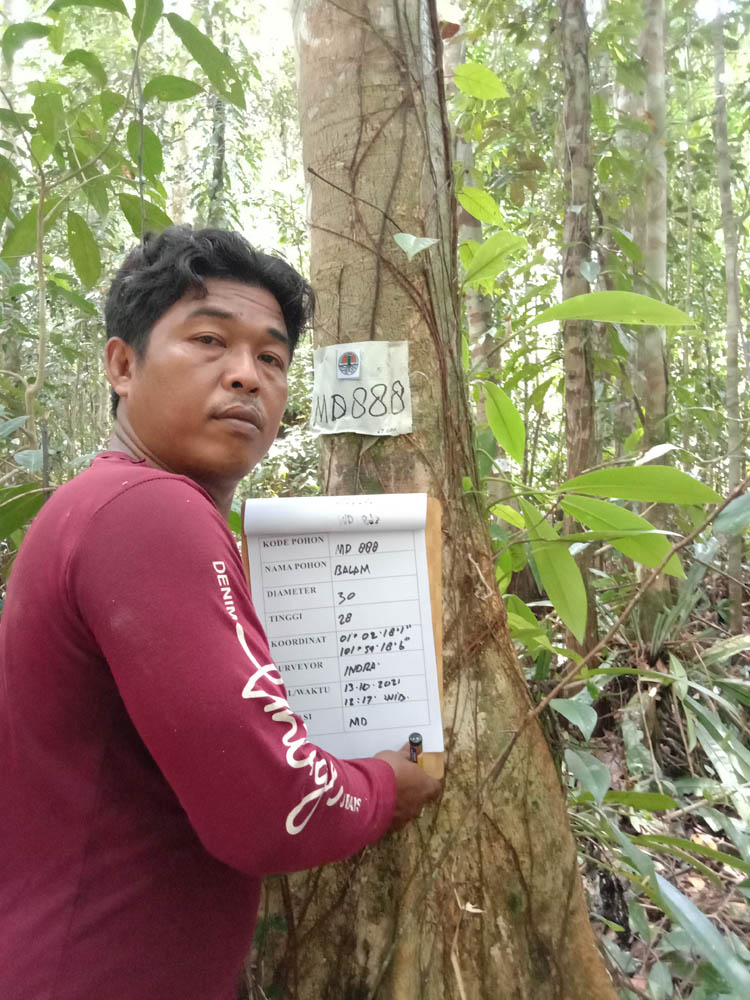 MD888
KODE POHON MD 888
NAMA POHON BALAM
DIAMETER 30
TINGGI 28
KOORDINAT 01° 02' 18.1"
101° 59' 18.6"
URVEYOR INDRA.
L/WAKTU 13.10.2021
12:17. WIB.
SI MD
DENIM